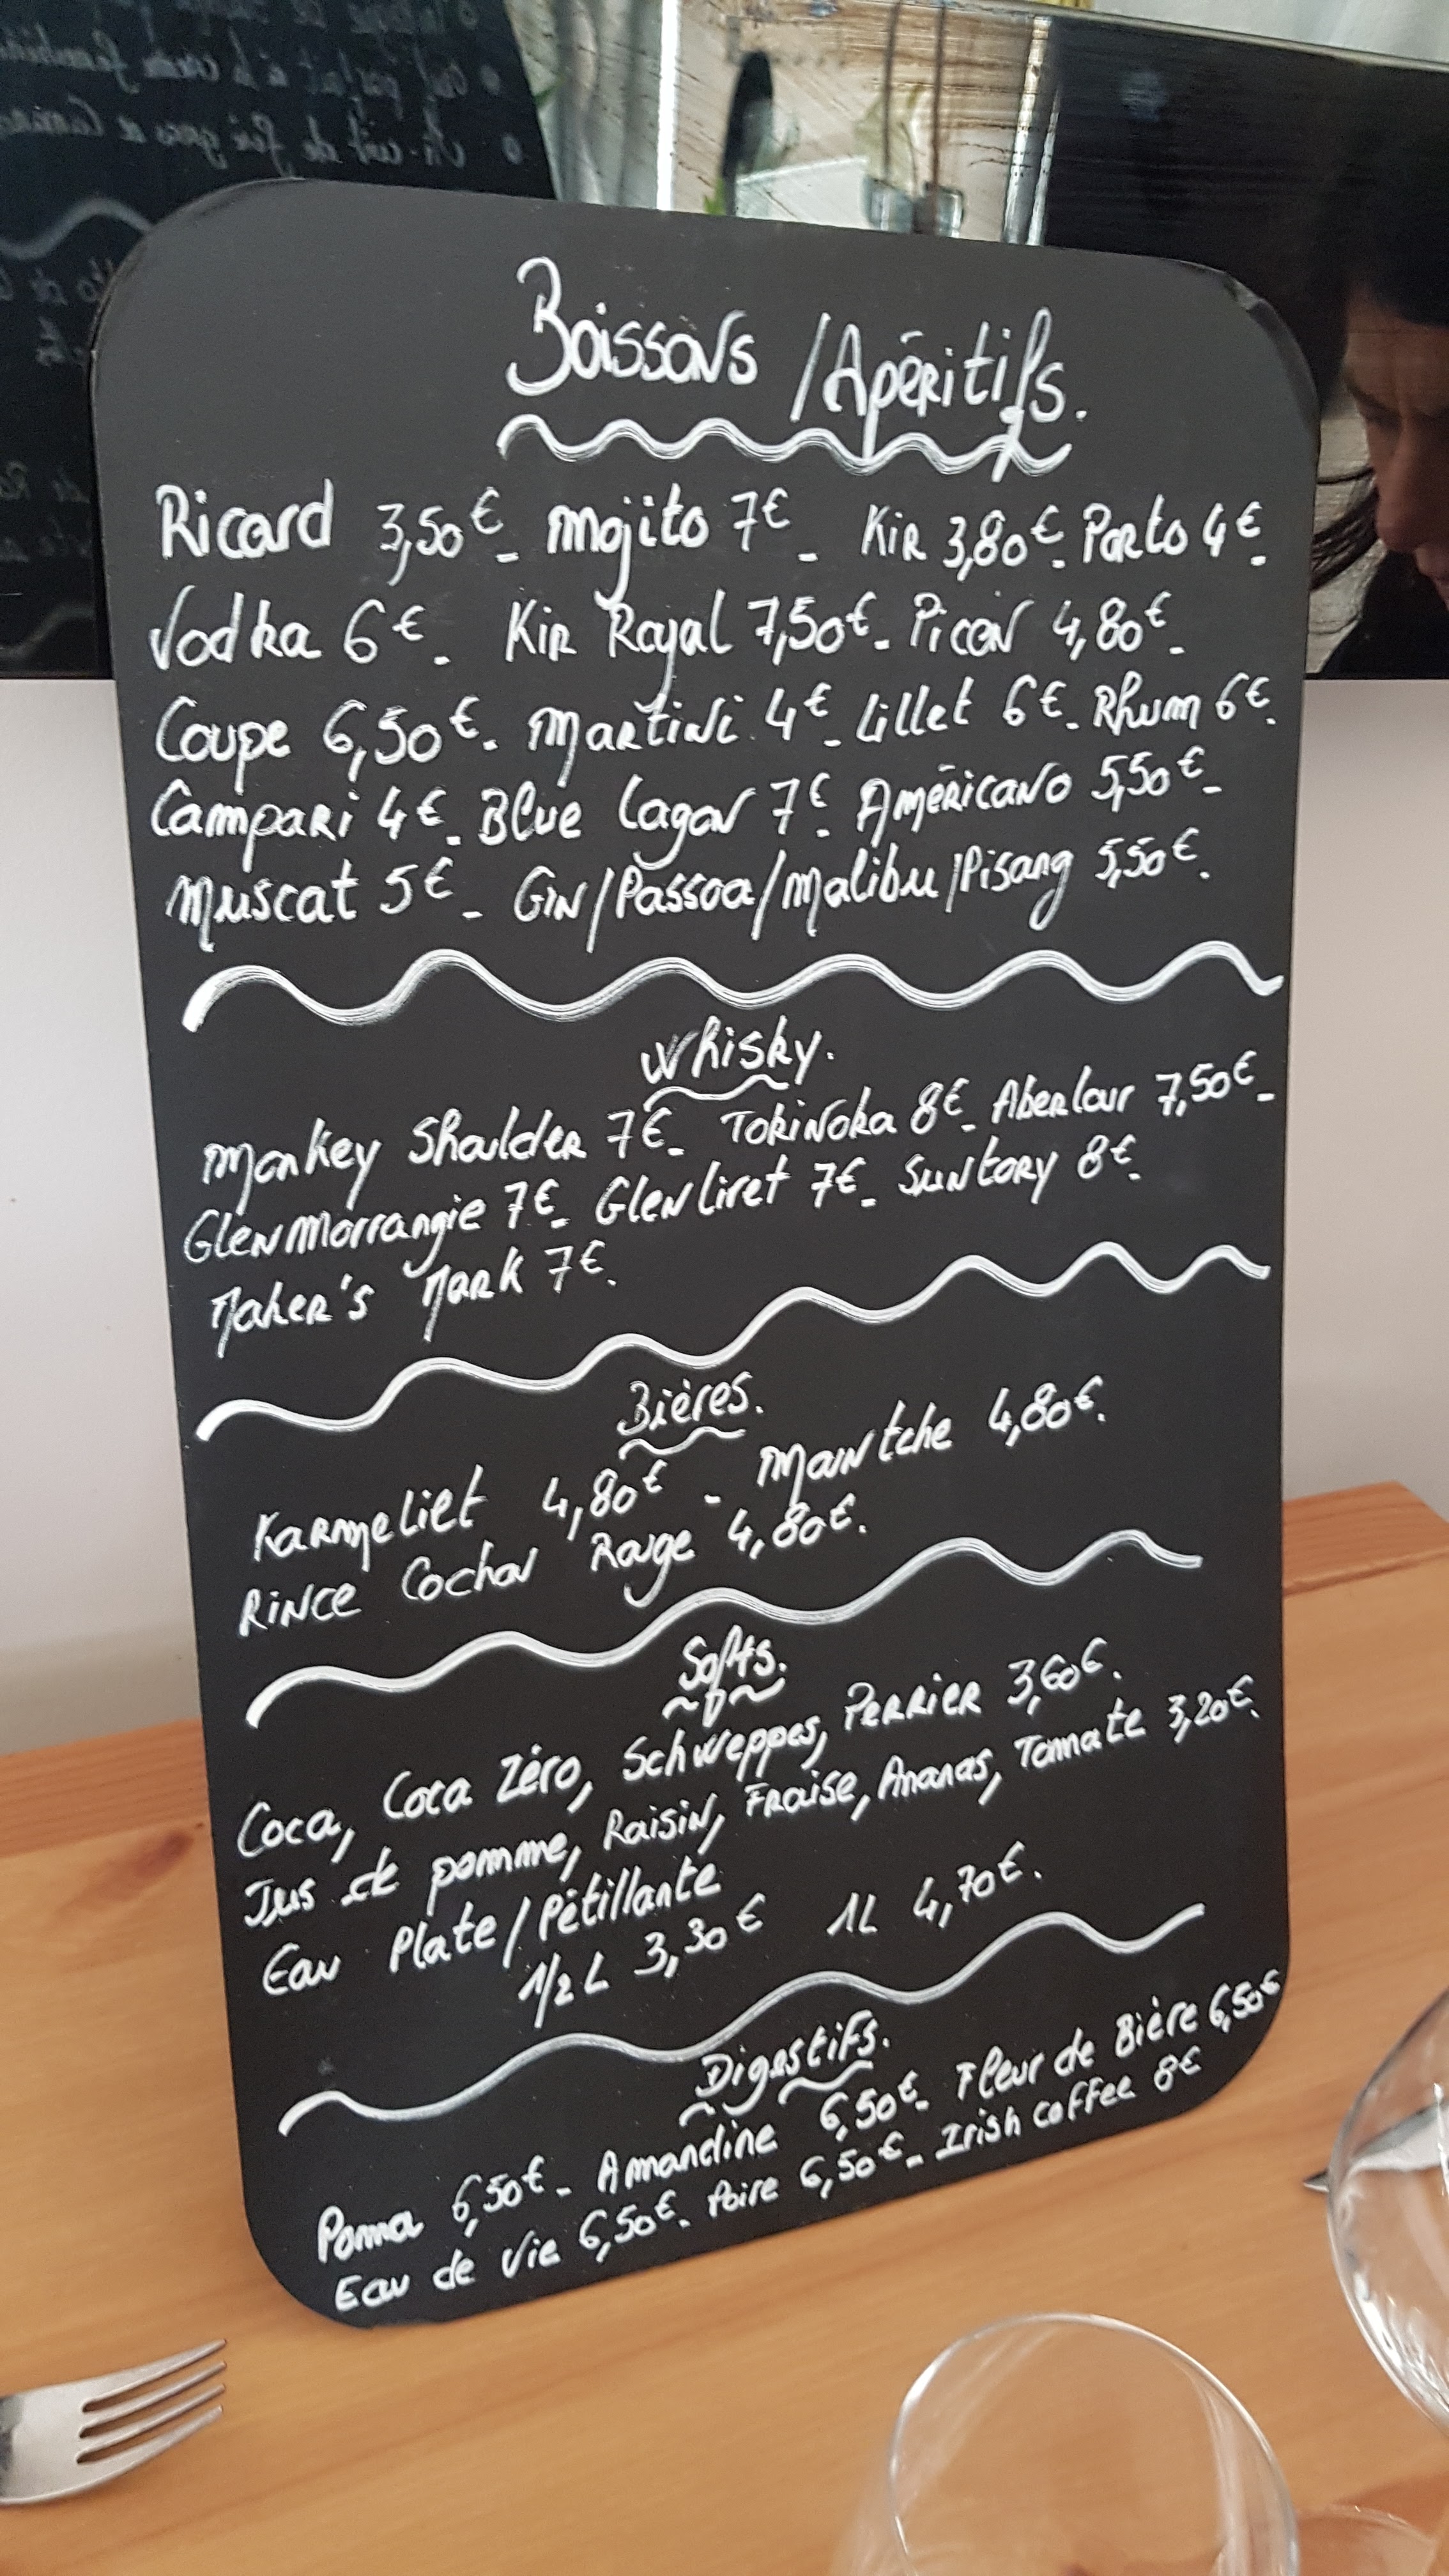 Boissons / Apéritifs.
Ricard 3,50€ - Mojito 7€ - Kir 3,80€ - Porto 4€ -
Vodka 6€ - Kir Royal 7,50€ - Picon 4,80€ -
Coupe 6,50€ - Martini 4€ - Lillet 6€ - Rhum 6€.
Campari 4€ - Blue Lagon 7€ - Américano 5,50€ -
Muscat 5€ - Gin/Passoa/Malibu/Pisang 5,50€.
Whisky.
Monkey Shoulder 7€ - Tokinoka 8€ - Aberlour 7,50€ -
Glenmorrangie 7€ - Glenliret 7€ - Suntory 8€.
Maker's Mark 7€.
Bières.
Karmeliet 4,80€ - Mawtche 4,80€.
Rince Cochon Rouge 4,80€.
Softs.
Coca, Coca Zéro, Schweppes, Perrier 3,60€.
Jus de pomme, Raisin, Fraise, Ananas, Tomate 3,20€.
Eau Plate/Pétillante
1/2 L 3,30€ 1L 4,70€.
Digestifs.
Poma 6,50€ - Amandine 6,50€ - Fleur de Bière 6,50€
Eau de Vie 6,50€ - Poire 6,50€ - Irish coffee 8€